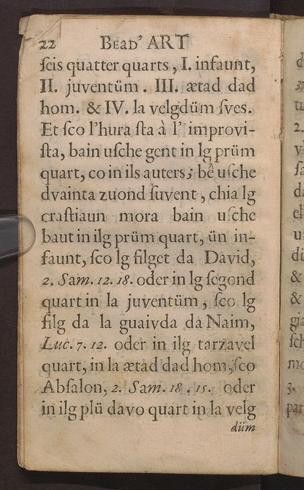 22 BEAD' ART
ſcis quatter quarts, I. infaunt,
II. juventüm. III. ætad dad
hom. & IV. la velgdüm ſves.
Et ſco l'hura ſta à l' improvi-
ſta, bain uſche gent in lg prüm
quart, co in ils auters; bê uſche
dvainta zuond ſuvent, chia lg
craſtiaun mora bain uſche
baut in ilg prüm quart, ün in-
faunt, ſco lg filget da David,
2. Sam. 12. 18. oder in lg ſegond
quart in la juventüm, ſco lg
filg da la guaivda da Naim,
Luc. 7. 12. oder in ilg tarzavel
quart, in la ætad dad hom, ſco
Abſalon, 2. Sam. 18. 15. oder
in ilg plü davo quart in la velg
düm